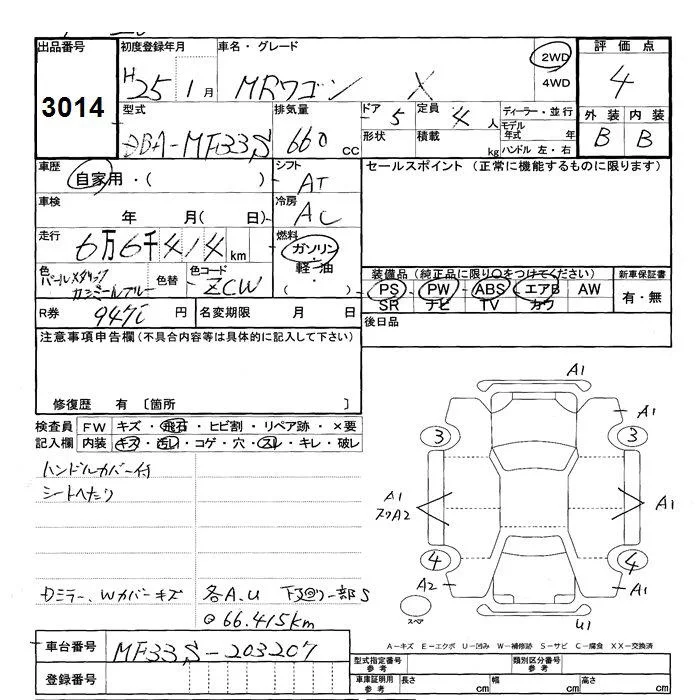 出品番号 初度登録年月 車名・グレード 評価点
3014
H25 1月 MRワゴン X 2WD 4WD 4
型式 排気量 ドア 5 定員 4 人 ディーラー・並行 外装 内装
DBA-MF33S 660 cc 形状 積載 kg モデル年式 年 B B
ハンドル 左・右
車歴 シフト セールスポイント (正常に機能するものに限ります)
自家用・( ) AT
車検 年 月( 日) 冷房 AC
走行 6万6千414km 燃料 ガソリン・軽油 ( )
色 パールメタリック カシミールブルー 色替 色コード ZCW
装備品(純正品に限り○をつけてください) 新車保証書
PS PW ABS エアB AW 有・無
SR ナビ TV カワ
R券 円 名変期限 月 日 後日品
注意事項申告欄(不具合内容等は具体的に記入して下さい)
修復歴 有 〔箇所 〕
検査員記入欄 FW キズ・飛石・ヒビ割・リペア跡・×要
内装 キズ・汚れ・コゲ・穴・スレ・キレ・破レ
ハンドルカバー付
シートへたり
Dミラー、Wカバーキズ 各A.U 下回り一部S
@66.415km
A1
A1
3 3
A1
A1
A2
4 4
A2 A1
スペア
U1
A-キズ E-エクボ U-凹み W-補修跡 S-サビ C-腐食 XX-交換済
車台番号 MF33S-203207
登録番号
型式指定番号 参考 類別区分番号 参考
車庫証明用 参考 長さ cm 幅 cm 高さ cm